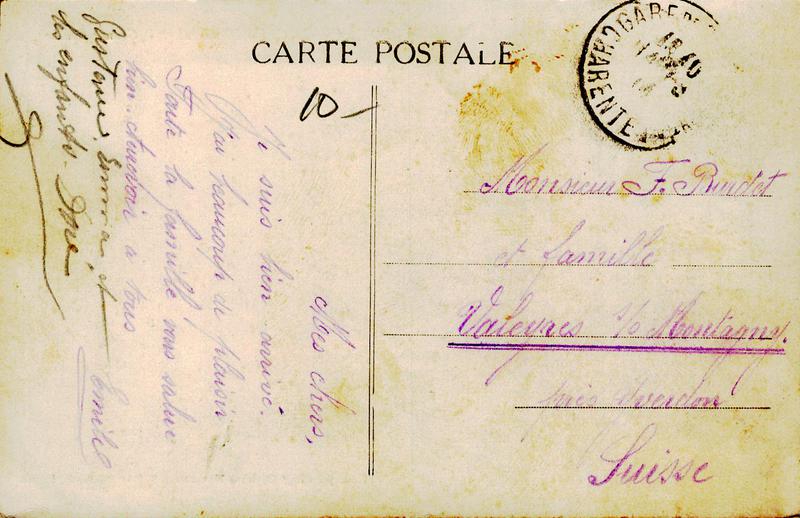 CARTE POSTALE
10-
GARE DE
CHARENTE
Mes chers,
Je suis bien arrivé.
J'ai beaucoup de plaisir
Toute la famille vous salue
bon Aurevoir à tous
Emile
Gustave, Emma, et
les enfants
Monsieur F. Burdet
et famille
Valeyres s/s Montagny.
près Yverdon
Suisse